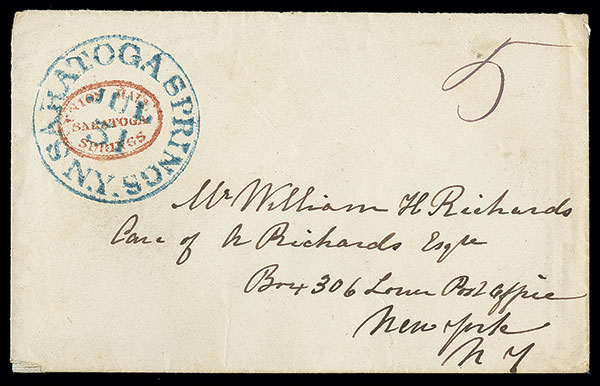 SARATOGA SPRINGS. N.Y
JUL
31
UNION HALL
SARATOGA
SPRINGS
5
Mr William H Richards
Care of A Richards Esqre
Box 306 Lower Post Office
New York
N Y